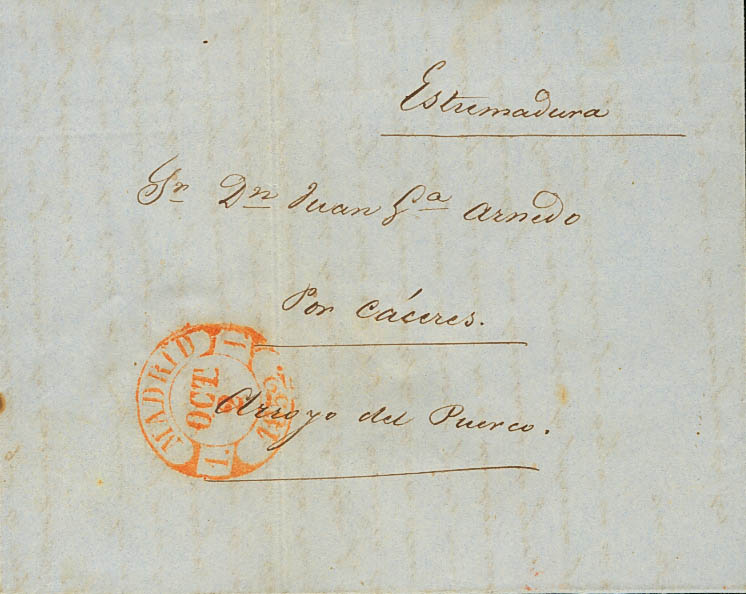 Estremadura
Sr Dn Juan Ga Arnedo
Por Cáceres.
Arroyo del Puerco.
MADRID
1.
OCT
1.